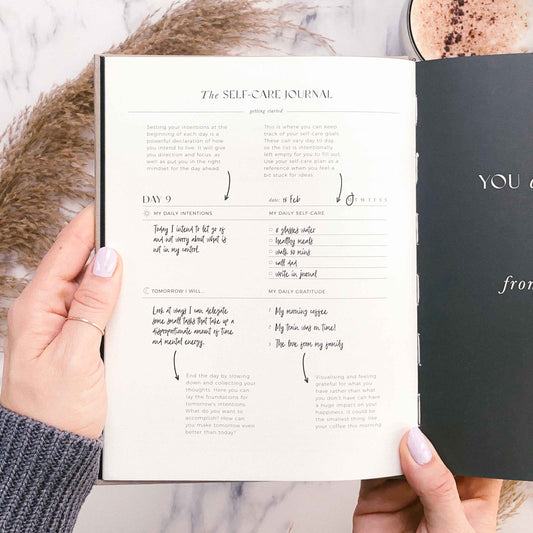 The SELF-CARE JOURNAL
getting started
Setting your intentions at the
beginning of each day is a
powerful declaration of how
you intend to live. It will give
you direction and focus, as
well as put you in the right
mindset for the day ahead.
This is where you can keep
track of your self-care goals.
These can vary day to day
so the list is intentionally
left empty for you to fill out.
Use your self-care plan as a
reference when you feel a
bit stuck for ideas.
DAY 9
date: 18 Feb
T W T F S S
MY DAILY INTENTIONS
Today I intend to let go of
and not worry about what is
not in my control.
MY DAILY SELF-CARE
8 glasses water
healthy meals
walk 30 mins
call dad
write in journal
TOMORROW I WILL...
Look at ways I can delegate
some small tasks that take up a
disproportionate amount of time
and mental energy.
MY DAILY GRATITUDE
1 My morning coffee
2 My train was on time!
3 The love from my family
End the day by slowing
down and collecting your
thoughts. Here you can
lay the foundations for
tomorrow's intentions.
What do you want to
accomplish? How can
you make tomorrow even
better than today?
Visualising and feeling
grateful for what you
have rather than what
you don't have can have
a huge impact on your
happiness. It could be
the smallest thing, like
your coffee this morning.
YOU
from